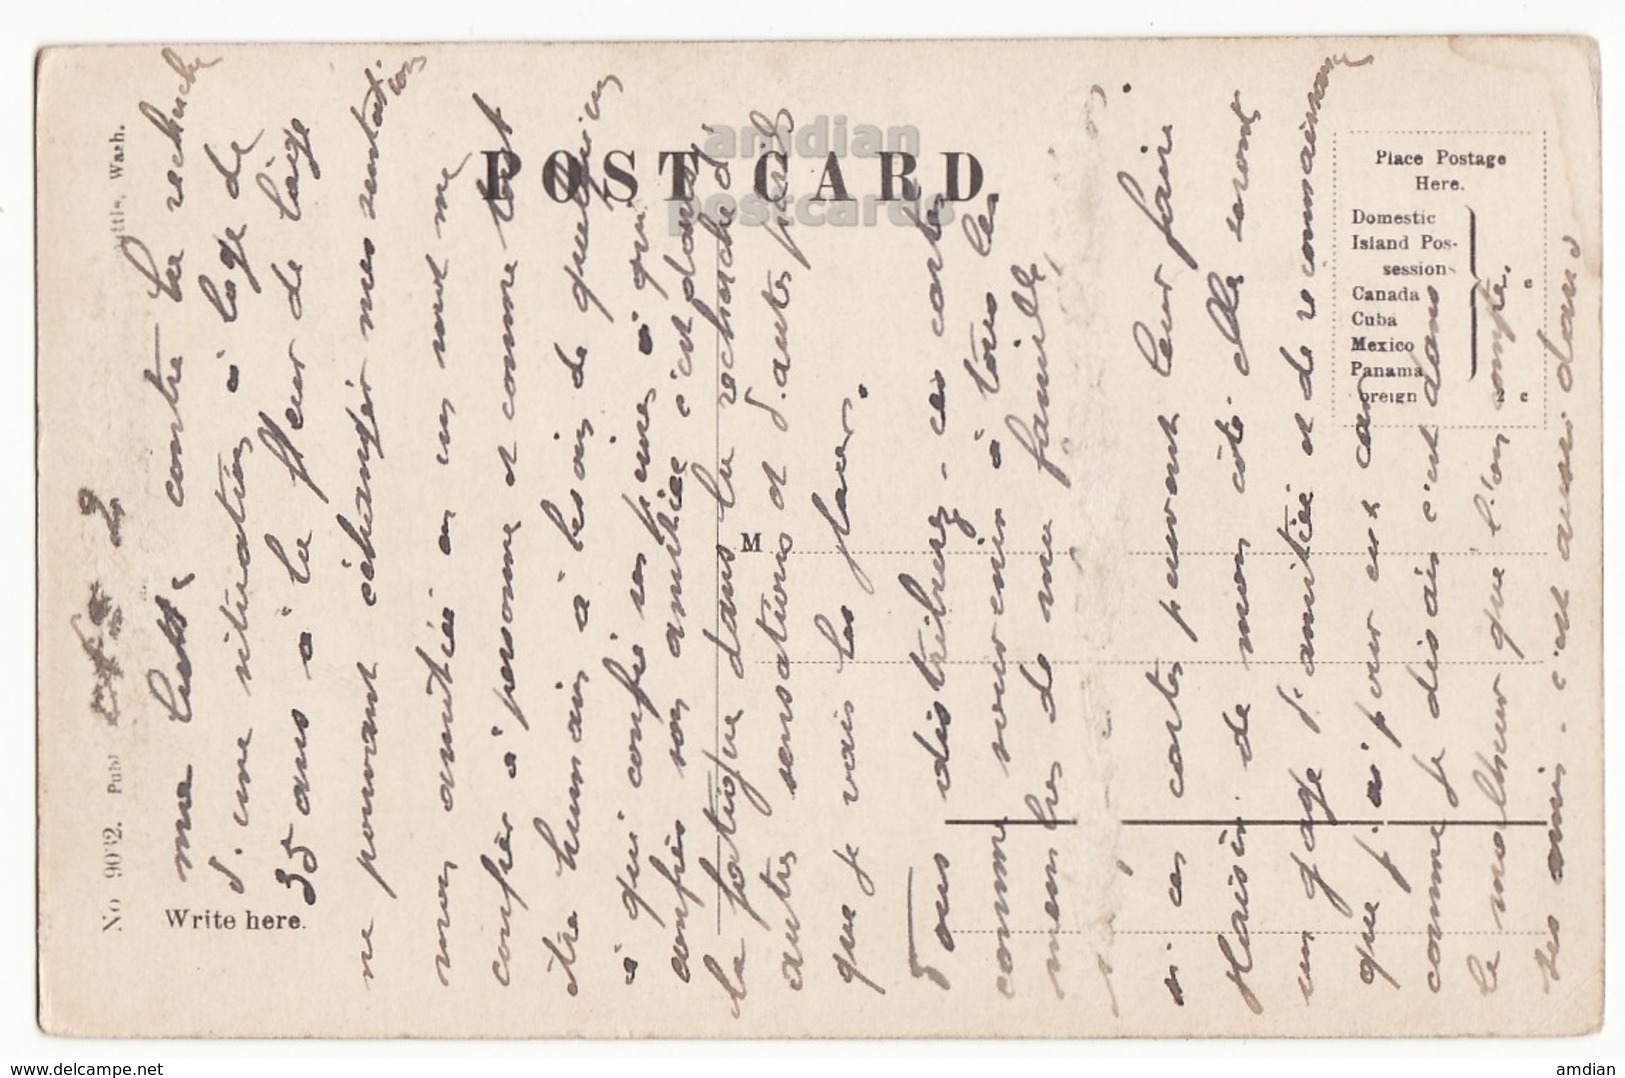 POST CARD
amdian
postcards
Place Postage
Here.
Domestic
Island Pos-
session
Canada
Cuba
Mexico
Panama
oreign 2 c
No 902. Publ
ttle, Wash.
Write here.
M
me lutte contre la recherche
d'une situation à l'age de
35 ans à la fleur de l'âge
ne pouvant échanger mes sensations
mon amitiée en un mot me
confier à personne et comme tout
être humain à besoin de quelqu'un
à qui confié ses peines à qui
confiés son amitiée c'est dans
la fatigue dans la recherche d'
autres sensations et d'autres
que je vais les
Tous distribuez ces cartes
comme souvenir à tous les
membres de ma famille
si ces cartes peuvent leur faire
plaisir. de mon côté elle seront
un gage d'amitiée et de reconnaissance
que j'ai pour eux car
comme je disais c'est dans
le malheur que l'on compte
ses amis. c'est aussi dans
amdian postcards
amdian